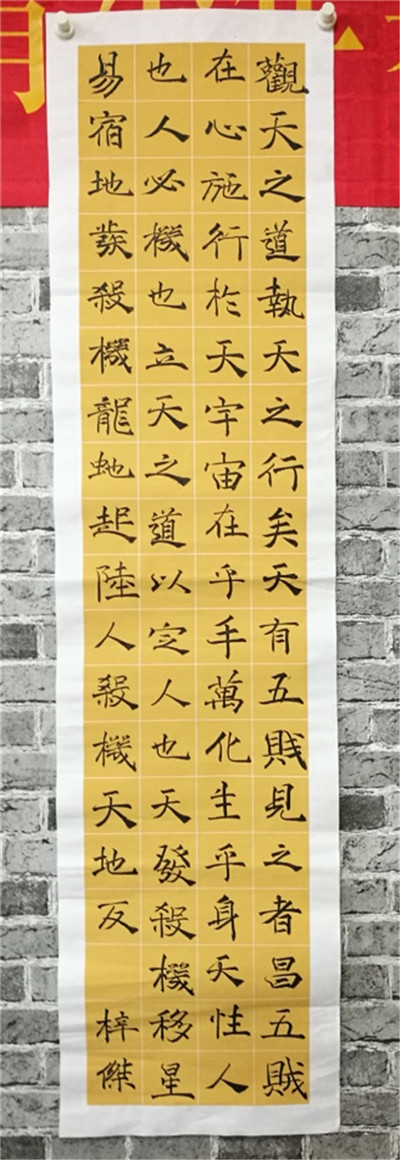 觀天之道執天之行矣天有五賊見之者昌五賊
在心施行於天宇宙在乎手萬化生乎身天性人
也人必機也立天之道以定人也天發殺機移星
易宿地發殺機龍虵起陸人殺機天地反
梓傑